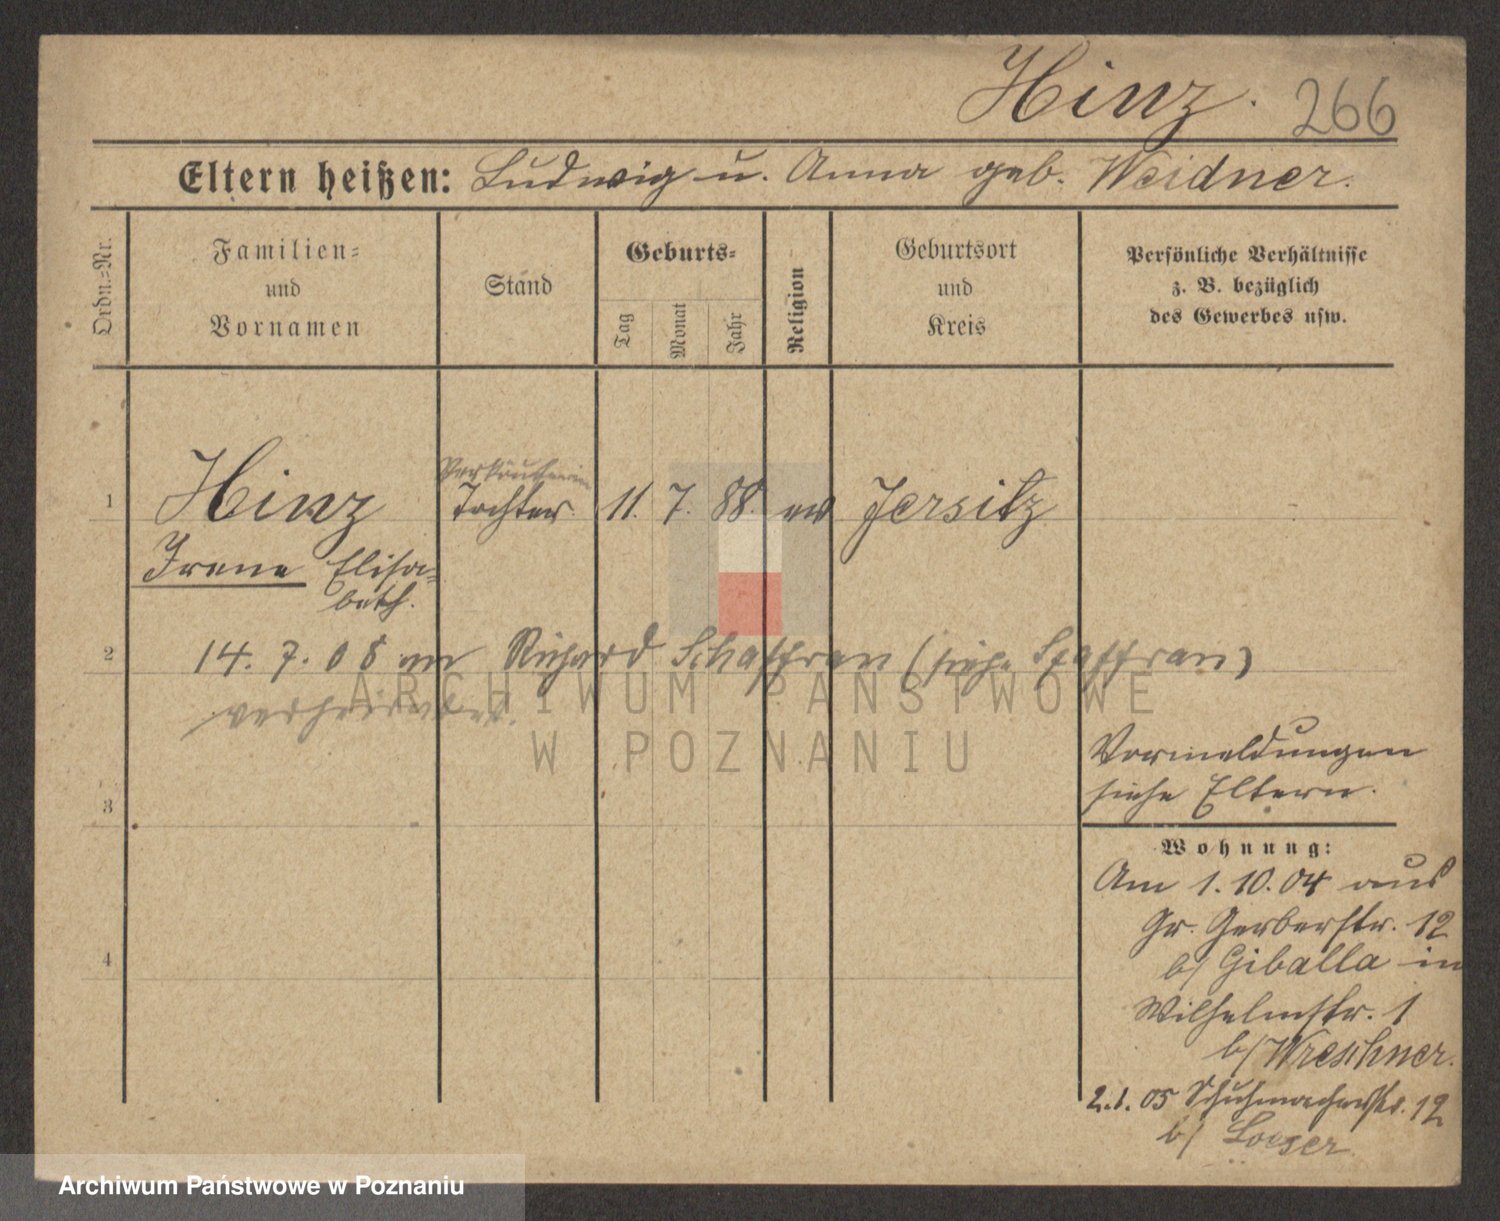 Hinz. 266
Eltern heißen: Ludwig u. Anna geb. Weidner.
Ordn.-Nr.
Familien-
und
Vornamen
Stand
Geburts-
Tag
Monat
Jahr
Religion
Geburtsort
und
Kreis
Persönliche Verhältnisse
z. B. bezüglich
des Gewerbes usw.
Verkäuferin
1 Hinz Tochter 11. 7. 88. ev Jersitz
Irene Elisa-
beth.
2 14. 7. 08 an Richard Schaffran (siehe Schaffran)
verheiratet.
ARCHIWUM PAŃSTWOWE
W POZNANIU
Vormeldungen
siehe Eltern.
3
Wohnung:
Am 1.10.04 aus
Gr. Gerberstr. 12
b/ Giballa in
4
Wilhelmstr. 1
b/ Wreschner.
2.1.05 Schuhmacherstr. 12
b/ Loeser
Archiwum Państwowe w Poznaniu